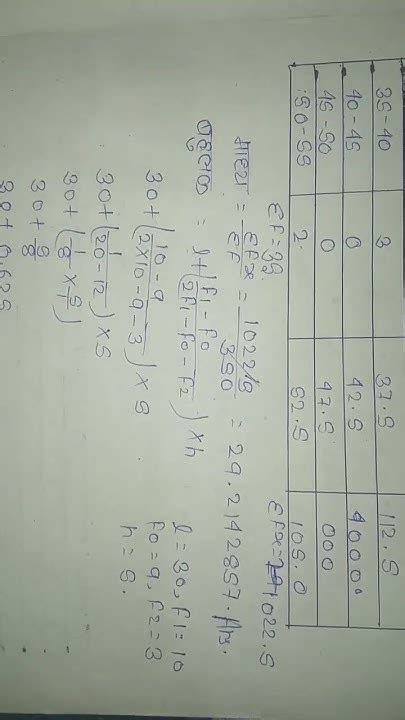 35-40 3 37.5 112.5
40-45 0 42.5 0000
45-50 0 47.5 000
50-55 2. 52.5 105.0
Σf=35. Σfx= 1022.5
माध्य = Σfx/Σf = 10225/350 = 29.2142857. Ans.
बहुलक = l+(f1-f0/2f1-f0-f2)×h
l=30, f1=10
30+(10-9/2×10-9-3)×5
f0=9, f2=3
30+(1/20-12)×5
h=5.
30+(1/8×5/1)
30+5/8
30+0.625